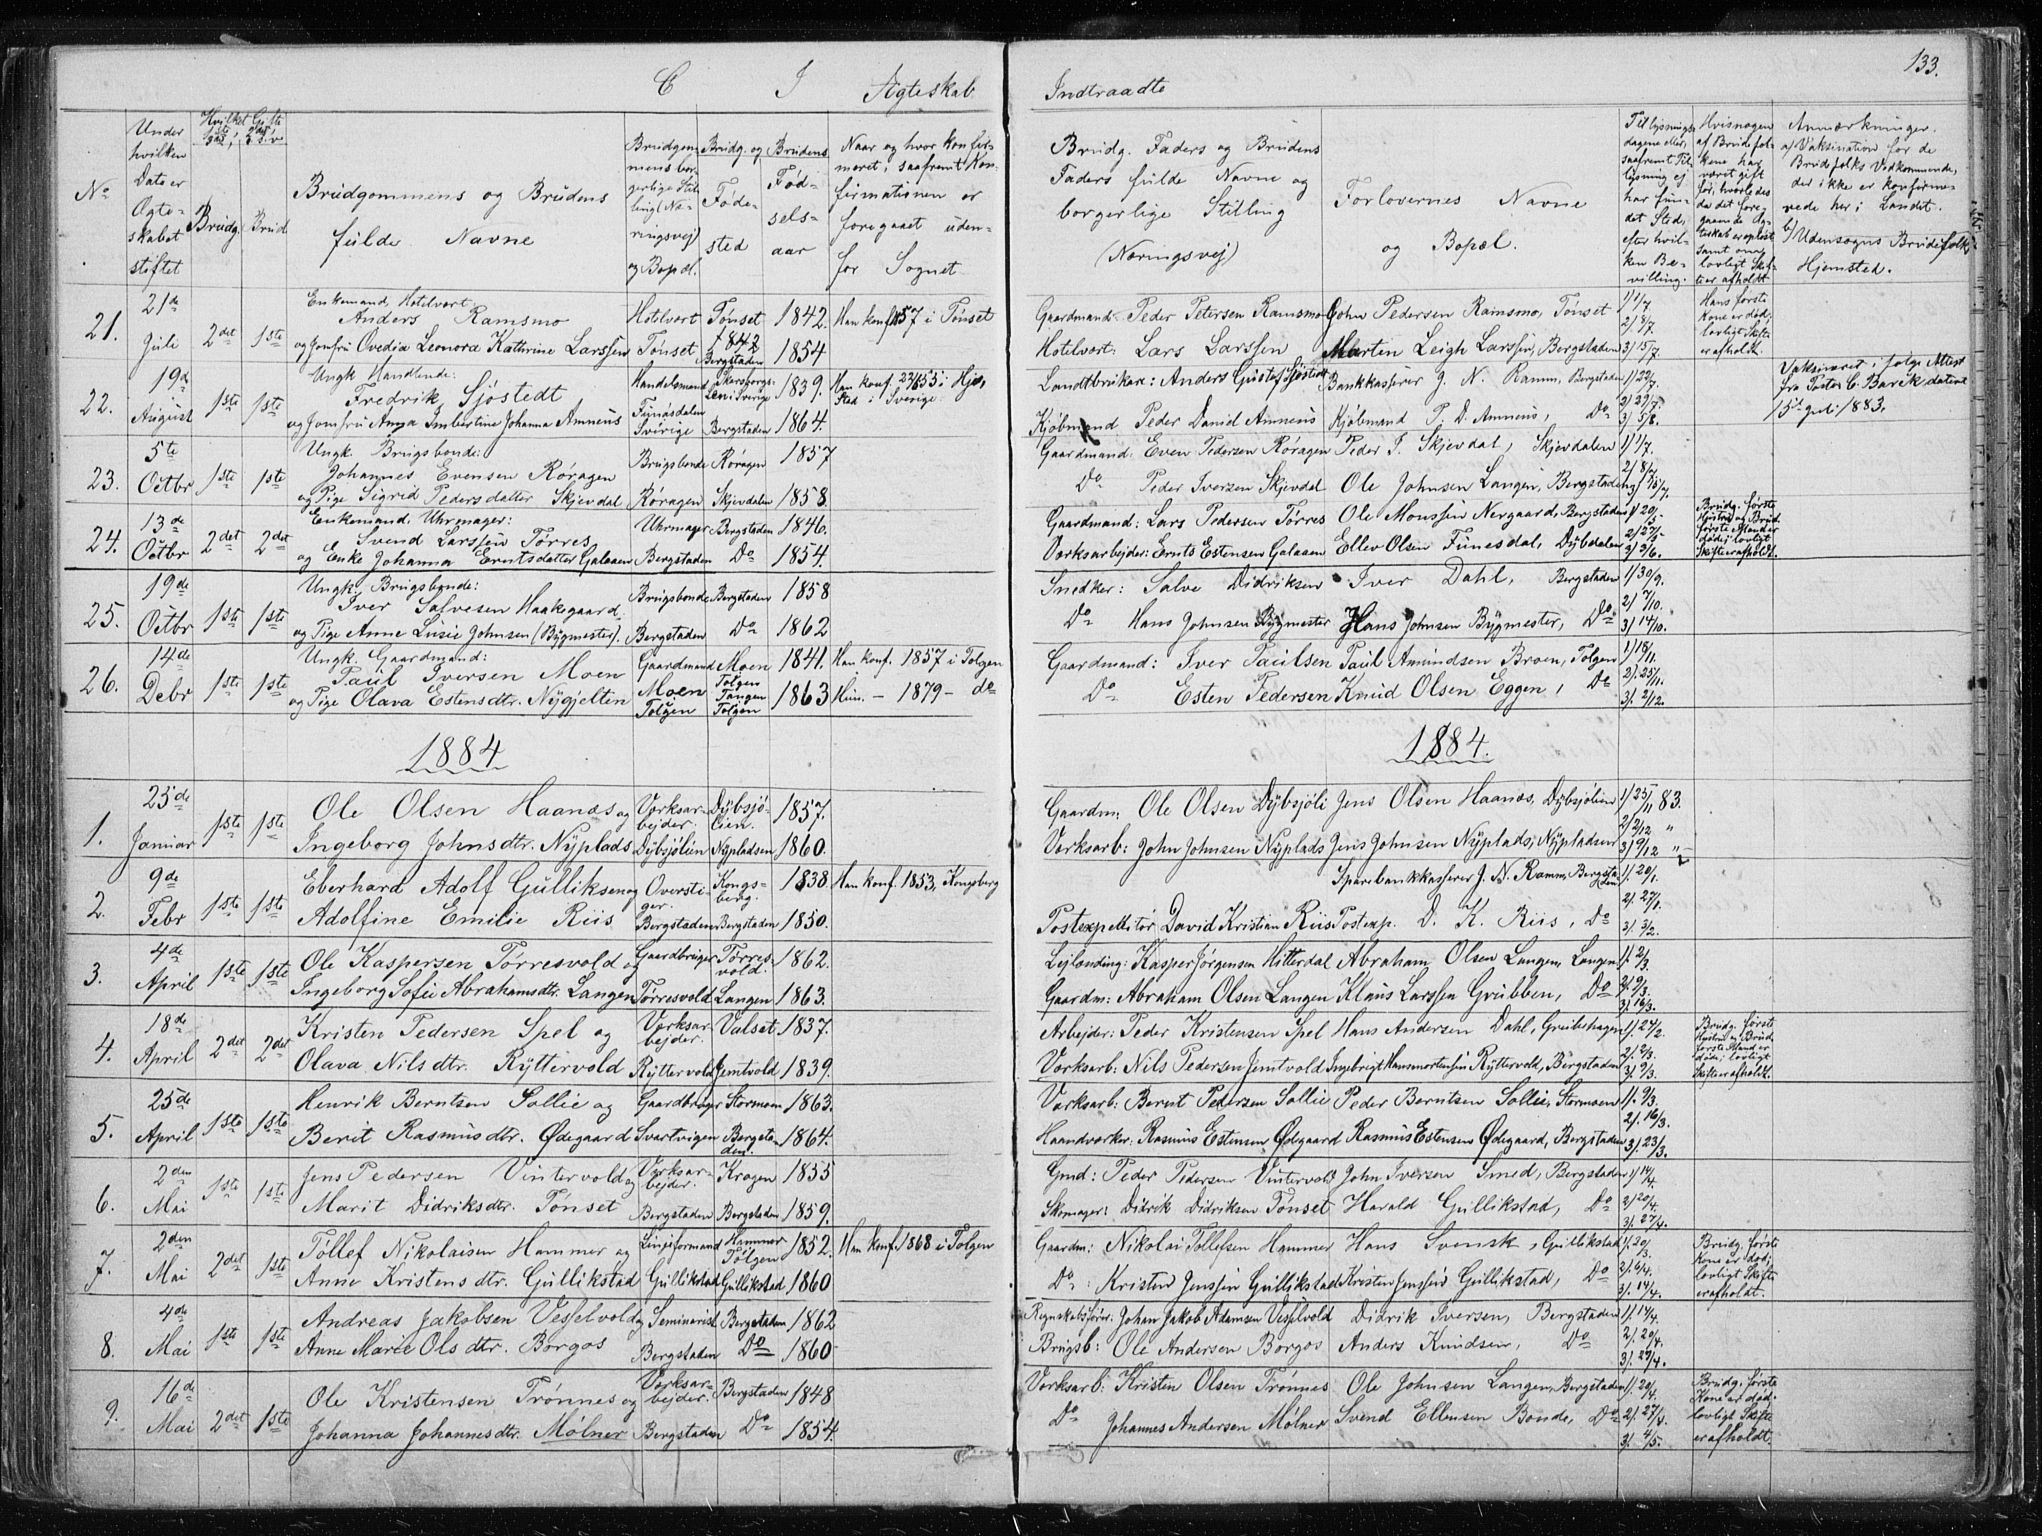 133.
C I Ægteskab Indtraadte
No
Under hvilken Dato er Ægteskabet stiftet
Hvilket Gifte 1ste, 2det o.s.v.
Brudg. Brud
Brudgommens og Brudens fulde Navne
Brudgommens borgerlige Stilling (Næringsvej) og Bopæl.
Brudg. og Brudens
Fødested
Fødselsaar
Naar og hvor konfirmeret, saafremt Konfirmationen er foregaaet udenfor Sognet
Brudg. Faders og Brudens Faders fulde Navne og borgerlige Stilling (Næringsvej)
Forlovernes Navne og Bopæl.
Tillysningsdagene eller, saafremt Tillysning ej har fundet Sted, efter hvilken Bevilling.
Hvis nogen af Brudefolkene har været gift før, hvorledes da det foregaaende Ægteskab er opløst samt om lovligt Skifte er afholdt
Anmærkninger.
a/ Vaksination for de Brudefolks Vedkommende, der ikke er konfirmerede her i Landet.
b/ Udensogns Brudefolks Hjemsted.
21. 21de Juli 2det 1ste Enkemand, Hotelvært: Anders Ramsmo Hotelvært Tønset 1842. Han konf. 1857 i Tønset Gaardmand Peder Petersen Ramsmo John Pedersen Ramsmo, Tønset 1/ 1/7. Hans første Kone er død,
og Jomfru Ovedia Leonora Kathrine Larssen Tønset 1842 Bergstaden 1854 Hotelvært: Lars Larssen Marten Leigh Larssen, Bergstaden 2/ 8/7. 3/ 15/7. lovligt Skifte er afholdt.
22. 19de August 1ste 1ste Ungk. Handlende: Fredrik Sjöstedt Handelsmand i Sverige 1839. Han konf. i Sverige. Landtbrikar: Anders Gustaf Sjöstedt Bankkasserer J. N. Ramm, Bergstaden 1/ 22/7. Vaksineret, ifølge Attest fra Pastor C. Barck, dateret 15de Juli 1883.
og Jomfru Anna Imbertine Johanna Amneus Funäsdalen Sverige Bergstaden 1864. Kjøbmand Peder David Amneus Kjøbmand P. D. Amneus, Do 2/ 29/7. 3/ 5/8.
23. 5te Octbr 1ste 1ste Ungk. Brugsbonde: Johannes Evensen Røragen Brugsbonde Røragen 1857 Gaardmand: Even Pedersen Røragen Peder I. Skjevdal, Skjevdalen 1/ 1/7.
og Pige Sigrid Pedersdatter Skjevdal Røragen Skjevdalen 1858. Do Peder Iversen Skjevdal Ole Johnsen Langen, Bergstaden 2/ 8/7. 3/ 15/7.
24. 13de Octbr 2det 2det Enkemand, Uhrmager: Svend Larssen Tørres Uhrmager Bergstaden 1846. Gaardmand: Lars Pedersen Tørres Ole Monssen Nergaard, Bergstaden 1/ 20/5. Brudg. første Hustru og Bruds første Mand er
og Enke Johanna Erntsdatter Galaaen Bergstaden Do 1854. Værksarbejder: Ernts Estensen Galaaen Ellev Olsen Funesdal, Dybdalen 2/ 27/5. 3/ 3/6. døde; lovligt Skifte er afholdt.
25. 19de Octbr 1ste 1ste Ungk. Brugsbonde: Iver Salvesen Haakegaard Brugsbonde Bergstaden 1858 Snedker: Salve Didriksen Iver Dahl, Bergstaden 1/ 30/9.
og Pige Anne Lusie Johnsen (Bygmester). Bergstaden Do 1862 Do Hans Johnsen Bygmester Hans Johnsen Bygmester, Do 2/ 7/10. 3/ 14/10.
26. 14de Debr 1ste 1ste Ungk. Gaardmand: Paul Iversen Moen Gaardmand Moen Tolgen 1841. Han konf. 1857 i Tolgen Gaardmand: Iver Paulsen Paul Amundsen Broen, Tolgen 1/ 18/11.
og Pige Olava Estensdtr. Nygjelten Moen Tolgen Tangen Tolgen 1863 Hun – 1879 – do Do Esten Pedersen Knud Olsen Eggen, Do 2/ 25/11. 3/ 2/12.
1884 1884.
1. 25de Januar 1ste 1ste Ole Olsen Haanæs og Værksarbejder. Dybsjølien. 1857. Gaardm: Ole Olsen Dybsjøli Jens Olsen Haanæs, Dybsjølien 1/ 25/11 83.
Ingeborg Johnsdtr. Nyplads Dybsjølien Nypladsen 1860. Værksarb: John Johnsen Nyplads Jens Johnsen Nyplads, Nypladsen 2/ 2/12 " 3/ 9/12 "
2. 9de Febr 1ste 1ste Eberhard Adolf Gulliksen og Overstiger. Kongsberg. 1838. Han konf. 1853, Kongsberg Sparebankkasserer J. N. Ramm, Bergstaden 1/ 20/1.
Adolfine Emilie Riis Bergstaden Bergstaden 1850. Postexpeditør David Kristian Riis Postexp. D. K. Riis, Do 2/ 27/1. 3/ 3/2.
3. 4de April 1ste 1ste Ole Kaspersen Tørresvold og Gaardbruger Tørresvold. 1862. Lejlænding: Kasper Jørgensen Hitterdal Abraham Olsen Langen, Langen 1/ 2/3.
Ingeborg Sofie Abrahamsdtr. Langen Tørresvold Langen 1863. Gaardm: Abraham Olsen Langen Klaus Larssen Grubben, Do 2/ 9/3. 3/ 16/3.
4. 18de April 2det 2det Kristen Pedersen Spel og Værksarbejder. Valset 1837. Arbejder: Peder Kristensen Spel Hans Andersen Dahl, Gruibehagen 1/ 27/2. Brudg. første Hustru og Bruds første Mand er
Olava Nilsdtr. Ryttervold Ryttervold Jemtvold 1839. Værksarb: Nils Pedersen Jemtvold Ingebrigt Hansmortensen Ryttervold, Bergstaden 2/ 2/3. 3/ 9/3. døde; lovligt Skifte er afholdt.
5. 25de April 1ste 1ste Henrik Berntsen Sollie og Gaardbruger Stormoen 1863. Værksarb: Bernt Pedersen Sollie Peder Berntsen Sollie, Stormoen 1/ 9/3.
Berit Rasmusdtr. Ødegaard Svartvigen Bergstaden. 1864. Haandværker: Rasmus Estensen Ødegaard Rasmus Estensen Ødegaard, Bergstaden 2/ 16/3. 3/ 23/3.
6. 2den Mai 1ste 1ste Jens Pedersen Vintervold og Værksarbejder. Kragen 1855 Gmd: Peder Pedersen Vintervold John Iversen Smed, Bergstaden 1/ 14/4.
Marit Didriksdtr. Tønset Bergstaden Bergstaden 1859. Skomager: Didrik Didriksen Tønset Harald Gullikstad, Do 2/ 20/4. 3/ 27/4.
7. 2den Mai 2det 1ste Tollef Nikolaisen Hammer og Linjeformand Hammer Tolgen 1852. Han konf. 1868 i Tolgen Gaardm: Nikolai Tollefsen Hammer Hans Svensk, Gullikstad 1/ 20/3. Brudg. første Kone er død;
Anne Kristensdtr. Gullikstad Gullikstad Gullikstad 1860 Do : Kristen Jenssen Gullikstad Kristen Jenssen Gullikstad, Do 2/ 6/4. 3/ 14/4. lovligt Skifte er afholdt.
8. 4de Mai 1ste 1ste Andreas Jakobsen Vesselvold og Seminarist Bergstaden 1862 Regnskabsfører: Johan Jakob Adamsen Vesselvold Didrik Iversen, Bergstaden 1/ 14/4.
Anne Marie Olsdtr. Borgos Bergstaden Do 1860 Brugsb: Ole Andersen Borgos Anders Knudsen, Do 2/ 20/4. 3/ 27/4.
9. 16de Mai 2det 1ste Ole Kristensen Trønnes og Værksarbejder. Bergstaden 1848 Værksarb: Kristen Olsen Trønnes Ole Johnsen Langen, Bergstaden 1/ 20/4. Brudg. første Kone er død.
Johanna Johannesdtr. Mølner Bergstaden Do 1854. Do Johannes Andersen Mølner Svend Ellevsen Bonde, Do 2/ 27/4. 3/ 4/5. lovligt Skifte er afholdt.